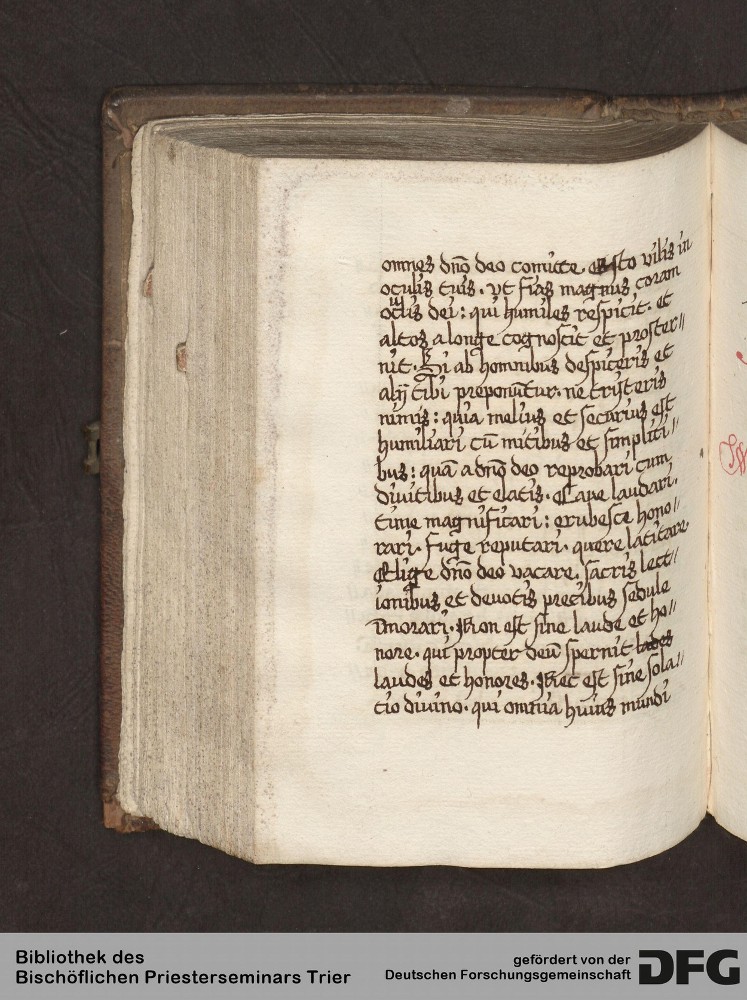 omnes dn̄o deo comitte. Esto vilis in
oculis tuis. vt fias magnus coram
oculis dei: qui humiles respicit. et
altos a longe cognoscit et proster//
nit. Si ab hominibus despiceris et
alij tibi preponūtur. ne tristeris
nimis: quia melius et securius est
humiliari cū mitibus et simplici//
bus: quā a dn̄o deo reprobari cum
divitibus et elatis. Cave laudari.
time magnificari: erubesce hono//
rari. fuge reputari. quere latitare.
Elige dn̄o deo vacare. sacris lect//
ionibus et devotis precibus sedule
īmorari. Non est sine laude et ho//
nore. qui propter deū spernit
laudes et honores. Nec est sine sola//
tio divino. qui omnia huius mundi
Bibliothek des
Bischöflichen Priesterseminars Trier
gefördert von der
Deutschen Forschungsgemeinschaft
DFG